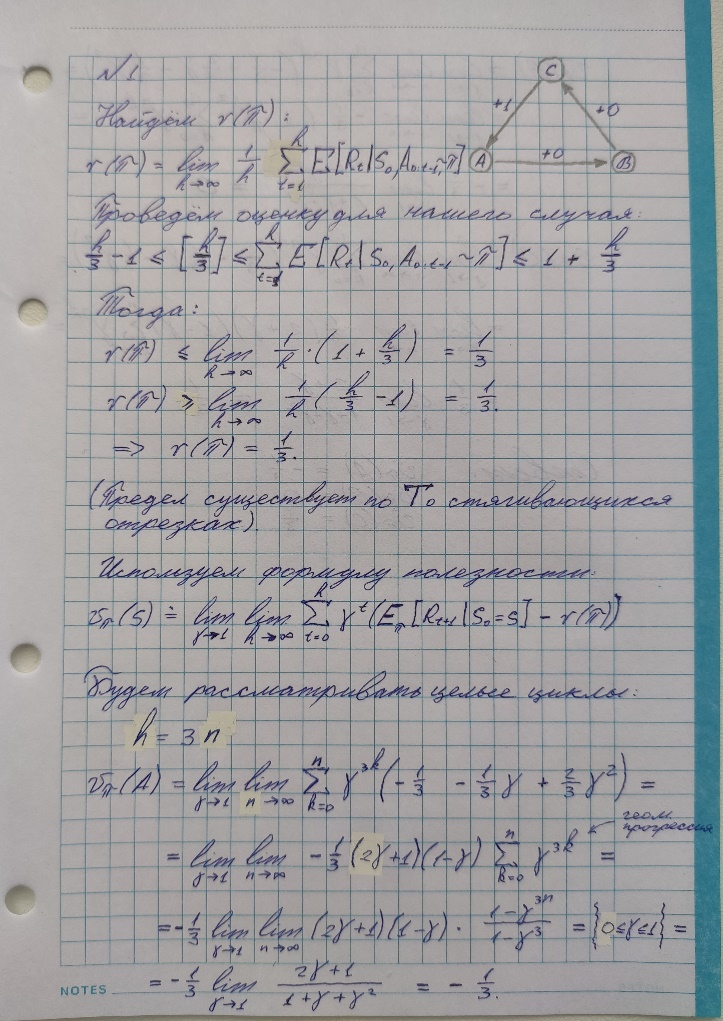 №1
C
+1
+0
A
+0
B
Найдём r(π):
r(π) = lim_{h→∞} 1/h ∑_{t=1}^{h} E[R_t | S_0, A_{0:t-1} ~ π]
Проведём оценку для нашего случая:
h/3 - 1 ≤ [h/3] ≤ ∑_{t=1}^{h} E[R_t | S_0, A_{0:t-1} ~ π] ≤ 1 + h/3
Тогда:
r(π) ≤ lim_{h→∞} 1/h · (1 + h/3) = 1/3
r(π) ≥ lim_{h→∞} 1/h (h/3 - 1) = 1/3.
=> r(π) = 1/3.
(Предел существует по То стягивающихся
отрезках).
Используем формулу полезности:
v_π(s) ≐ lim_{γ→1} lim_{h→∞} ∑_{t=0}^{h} γ^t (E_π[R_{t+1} | S_0 = s] - r(π))
Будем рассматривать целые циклы:
h = 3n
v_π(A) = lim_{γ→1} lim_{n→∞} ∑_{k=0}^{n} γ^{3k} (-1/3 - 1/3 γ + 2/3 γ^2) =
геом.
прогрессия
= lim_{γ→1} lim_{n→∞} -1/3 (2γ+1)(1-γ) ∑_{k=0}^{n} γ^{3k} =
= -1/3 lim_{γ→1} lim_{n→∞} (2γ+1)(1-γ) · (1-γ^{3n})/(1-γ^3) = {0≤γ≤1} =
= -1/3 lim_{γ→1} (2γ+1)/(1+γ+γ^2) = -1/3.
NOTES